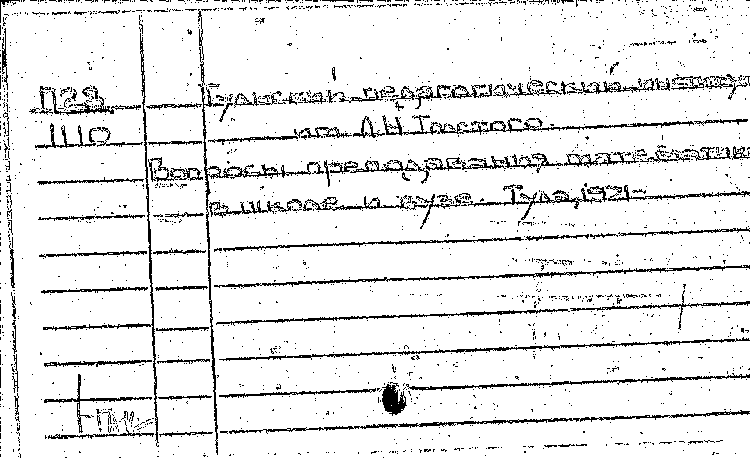 П28 Тульский педагогический институт
1110 им. Л.Н. Толстого.
Вопросы преподавания математики
в школе и вузе. Тула, 1971-